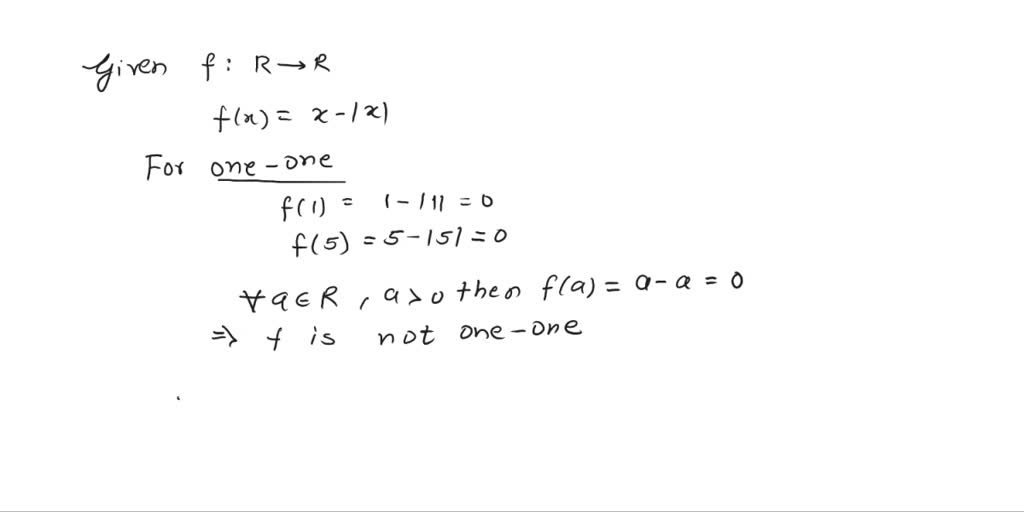 Given f: R→R
f(x) = x-|x|
For one-one
f(1) = 1-|1| = 0
f(5) = 5-|5| = 0
∀ a ∈ R, a>0 then f(a) = a-a = 0
⇒ f is not one-one